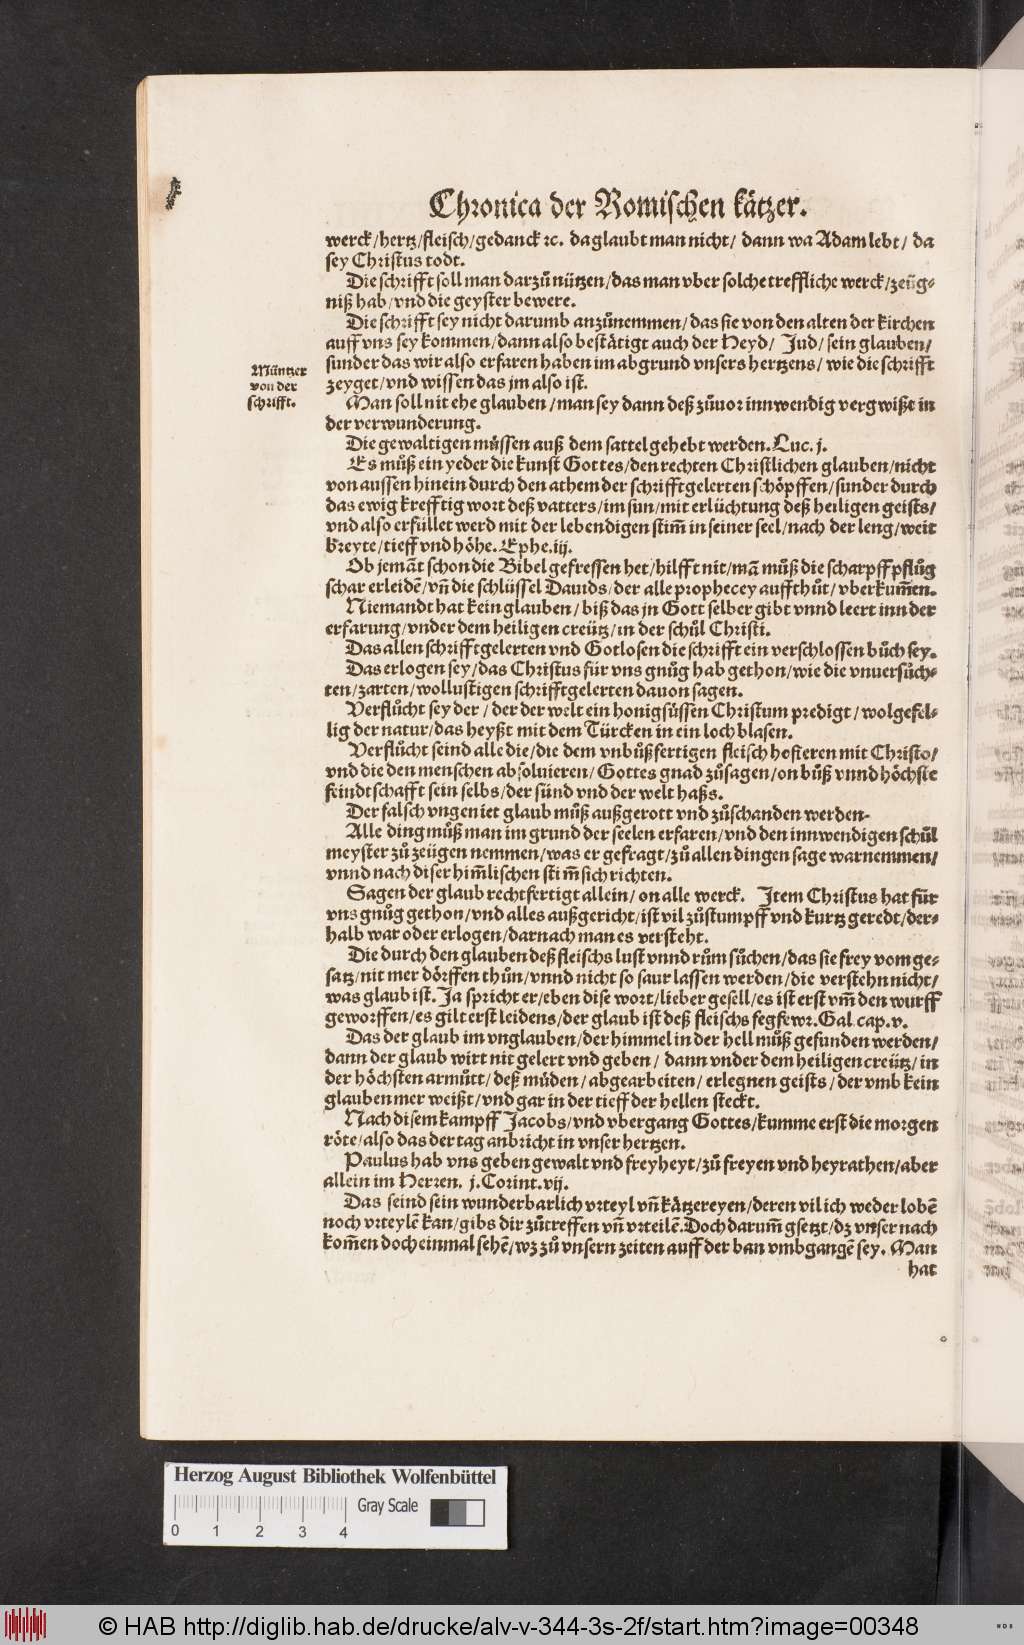 Chronica der Romischen kätzer.
werck/hertz/fleisch/gedanck ⁊c. da glaubt man nicht/ dann wa Adam lebt/ da
sey Christus todt.
Die schrifft soll man darzů nützen/das man vber solche treffliche werck/zeüg-
niß hab/vnd die geyster bewere.
Die schrifft sey nicht darumb anzůnemmen/das sie von den alten der kirchen
auff vns sey kommen/dann also bestätigt auch der Heyd/ Jud/sein glauben/
sunder das wir also erfaren haben im abgrund vnsers hertzens/ wie die schrifft
zeyget/vnd wissen das jm also ist.
Müntzer
von der
schrifft.
Man soll nit ehe glauben/man sey dann deß zůuor innwendig vergwißt in
der verwunderung.
Die gewaltigen müssen auß dem sattel gehebt werden. Luc. j.
Es můß ein yeder die kunst Gottes/den rechten Christlichen glauben/nicht
von aussen hinein durch den athem der schrifftgelerten schöpffen/sunder durch
das ewig krefftig wort deß vatters/im sun/mit erlüchtung deß heiligen geists/
vnd also erfüllet werd mit der lebendigen stim̄ in seiner seel/nach der leng/weit
breyte/tieff vnd höhe. Ephe. iij.
Ob jemāt schon die Bibel gefressen het/hilfft nit/mā můß die scharpff pflůg
schar erleidē/vn̄ die schlüssel Dauids/der alle prophecey auffthůt/vberkum̄en.
Niemandt hat kein glauben/biß das jn Gott selber gibt vnnd leert inn der
erfarung/vnder dem heiligen creütz/in der schůl Christi.
Das allen schrifftgelerten vnd Gotlosen die schrifft ein verschlossen bůch sey.
Das erlogen sey/das Christus für vns gnůg hab gethon/wie die vnuersůch-
ten/zarten/wollustigen schrifftgelerten dauon sagen.
Verflůcht sey der/der der welt ein honigsüssen Christum predigt/wolgefel-
lig der natur/das heyßt mit dem Türcken in ein loch blasen.
Verflůcht seind alle die/die dem vnbůßfertigen fleisch hofieren mit Christo/
vnd die den menschen absoluieren/Gottes gnad zůsagen/on bůß vnnd höchste
feindtschafft sein selbs/der sünd vnd der welt haßs.
Der falsch vngeniet glaub můß außgerott vnd zůschanden werden.
Alle ding můß man im grund der seelen erfaren/vnd den innwendigen schůl
meyster zů zeügen nemmen/was er gefragt/zů allen dingen sage warnemmen/
vnnd nach diser him̄lischen stim̄ sich richten.
Sagen der glaub rechtfertigt allein/on alle werck. Item Christus hat für
vns gnůg gethon/vnd alles außgericht/ist vil zůstumpff vnd kurtz geredt/der-
halb war oder erlogen/darnach man es versteht.
Die durch den glauben deß fleischs lust vnnd rům sůchen/das sie frey vom ge-
satz/nit mer dörffen thůn/vnnd nicht so saur lassen werden/die verstehn nicht/
was glaub ist. Ja spricht er/eben dise wort/lieber gesell/es ist erst vm̄ den wurff
geworffen/es gilt erst leidens/der glaub ist deß fleischs fegfewr. Gal. cap. v.
Das der glaub im vnglauben/der himmel in der hell můß gefunden werden/
dann der glaub wirt nit gelert vnd geben/ dann vnder dem heiligen creütz/in
der höchsten armůtt/deß müden/abgearbeiten/erlegnen geists/der vmb kein
glauben mer weißt/vnd gar in der tieff der hellen steckt.
Nach disem kampff Jacobs/vnd vbergang Gottes/kumme erst die morgen
röte/also das der tag anbricht in vnser hertzen.
Paulus hab vns geben gewalt vnd freyheyt/zů freyen vnd heyrathen/aber
allein im Herren. j. Corint. vij.
Das seind sein wunderbarlich vrteyl vn̄ kätzereyen/deren vil ich weder lobē
noch vrteylē kan/gibs dir zůtreffen vn̄ vrteilē. Doch darum̄ gsetzt/dz vnser nach
kom̄en doch einmal sehē/wz zů vnsern zeiten auff der ban vmbgangē sey. Man
hat
Herzog August Bibliothek Wolfenbüttel
Gray Scale
0 1 2 3 4
© HAB http://diglib.hab.de/drucke/alv-v-344-3s-2f/start.htm?image=00348